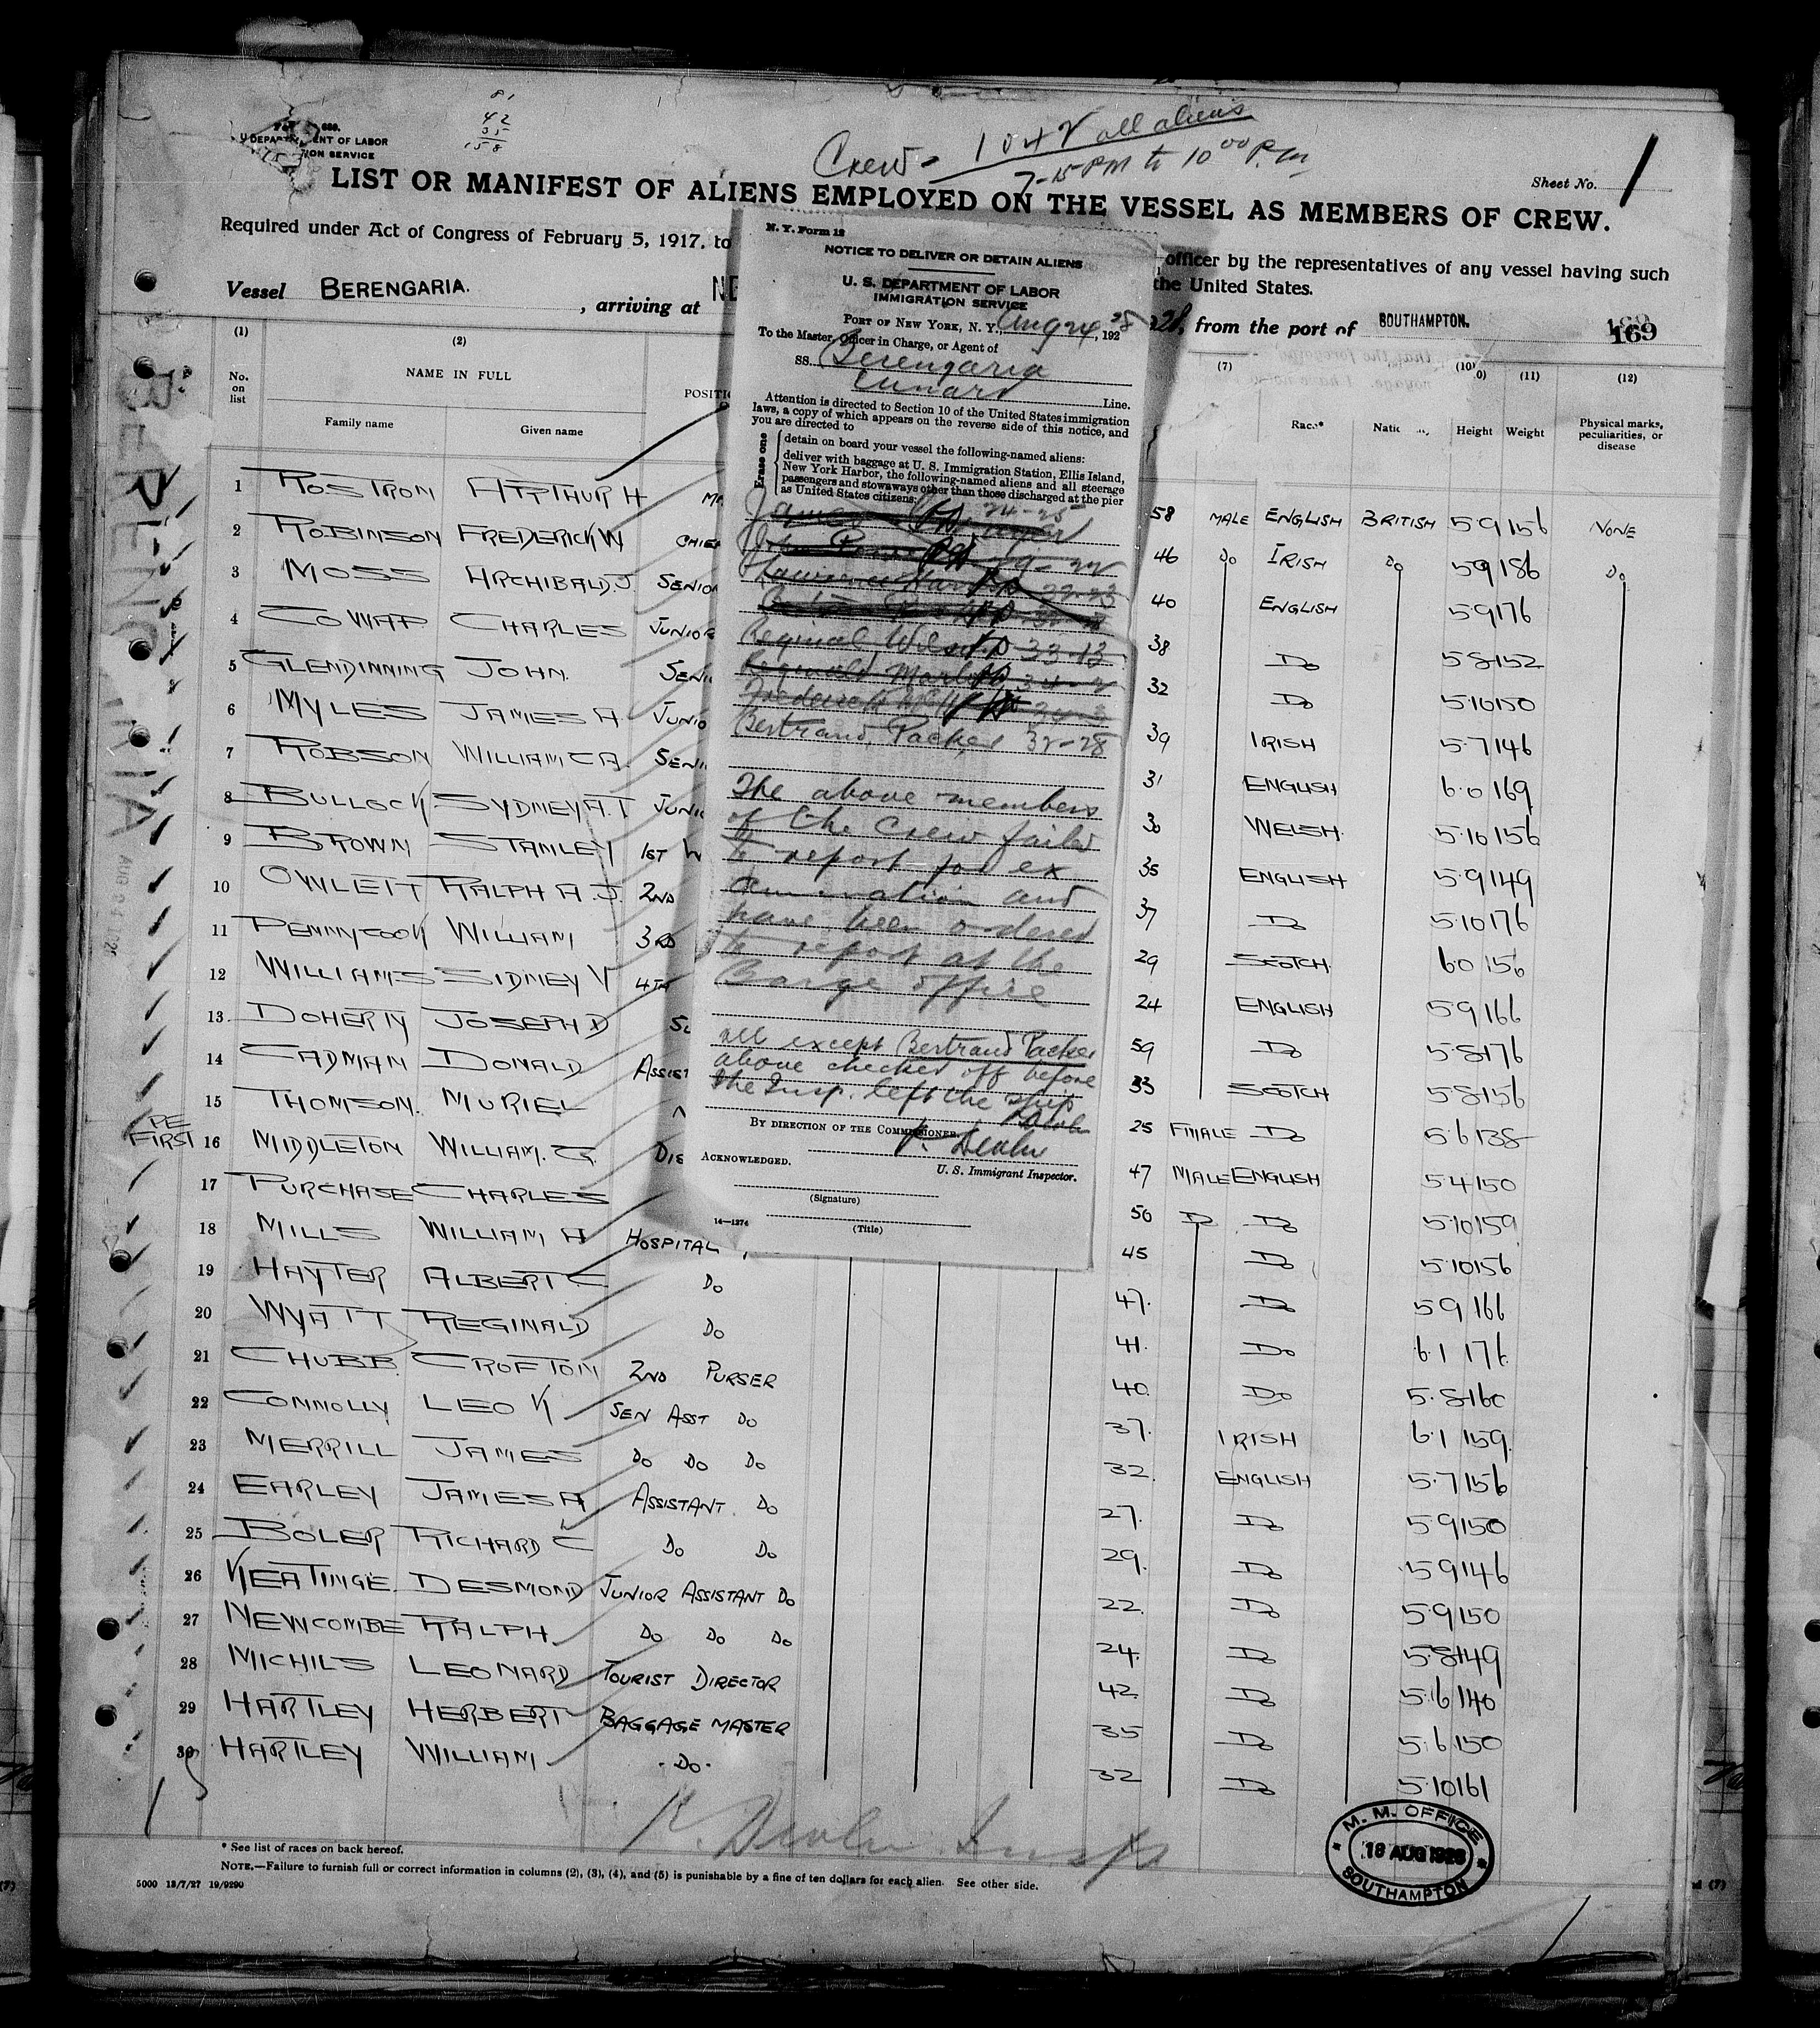 81
42
35
158
Crew = 1042 all aliens
7-15 PM to 10 00 P.M
ENT OF LABOR
ION SERVICE
Sheet No. 1
LIST OR MANIFEST OF ALIENS EMPLOYED ON THE VESSEL AS MEMBERS OF CREW.
Required under Act of Congress of February 5, 1917, to
officer by the representatives of any vessel having such
the United States.
Vessel BERENGARIA. , arriving at NE
from the port of SOUTHAMPTON.
169
N. Y. Form 12
NOTICE TO DELIVER OR DETAIN ALIENS
U. S. DEPARTMENT OF LABOR
IMMIGRATION SERVICE
PORT OF NEW YORK, N. Y., Aug 24, 1928
To the Master, Officer in Charge, or Agent of
SS. Berengaria
Cunard Line.
Attention is directed to Section 10 of the United States immigration
laws, a copy of which appears on the reverse side of this notice, and
you are directed to
Erase one
detain on board your vessel the following-named aliens:
deliver with baggage at U. S. Immigration Station, Ellis Island,
New York Harbor, the following-named aliens and all steerage
passengers and stowaways other than those discharged at the pier
as United States citizens:
James 24-25
John
Lawrence
Reginal Wilson 33-13
Reginald
Frederick
Bertrand Packer 32-28
The above members
of the Crew failed
to report for ex
amination and
have been ordered
to report at the
Barge office
all except Bertrand Packer
above checked off before
the Insp. left the ship
BY DIRECTION OF THE COMMISSIONER
ACKNOWLEDGED.
U. S. Immigrant Inspector.
(Signature)
14—1274
(Title)
(1) (2) (7) (10) (11) (12)
No. on list
NAME IN FULL
Family name Given name
POSITI
Race* Height Weight
Physical marks, peculiarities, or disease
BERENGARIA
1 ROSTRON ARTHUR H 58 MALE ENGLISH BRITISH 5 9 156 NONE
2 ROBINSON FREDERICK W CHIEF 46 Do IRISH Do 5 9 186 Do
3 MOSS ARCHIBALD. J. SENIOR 40 ENGLISH 5 9 176
4 COWAP CHARLES JUNIOR 38 Do 5 8 152
5 GLENDINNING JOHN. SENI 32 Do 5 10 150
6 MYLES JAMES A JUNIO 39 IRISH 5.7 146
7 ROBSON WILLIAM C A. SENI 31 ENGLISH 6.0 169
8 BULLOCK SYDNEY A.T JUNI 30 WELSH. 5.10 156
9 BROWN STANLEY 1ST 35 ENGLISH 5.9 149
10 OWLETT RALPH A J. 2ND 37 Do 5.10 176
11 PENNYCOOK WILLIAM 3RD 29 SCOTCH 6 0 156
12 WILLIAMS SIDNEY V 4TH 24 ENGLISH 5 9 166
13. DOHERTY JOSEPH D SU 59 Do 5.8 176
14 CADMAN DONALD ASSIST 33 SCOTCH 5 8 156
15 THOMSON. MURIEL 25 FMALE Do 5 6 138
FIRST 16 MIDDLETON WILLIAM. G. DIS 47 MALE ENGLISH 5 4 150
17 PURCHASE CHARLES 50 Do Do 5.10 159
18 MILLS WILLIAM H HOSPITAL 45 Do 5.10 156
19 HAYTER ALBERT C Do 47. Do 5 9 166
20 WYATT REGINALD Do 41. Do 6.1 176
21 CHUBB CROFTON 2ND PURSER 40. Do 5.8 160
22 CONNOLLY LEO K SEN ASST Do 37. IRISH 6.1 159.
23 MERRILL JAMES Do Do Do 32. ENGLISH 5.7 156
24 EARLEY JAMES A ASSISTANT Do 27. Do 5 9 150
25 BOLER RICHARD C Do Do 29. Do 5 9 146
26 KEATINGE. DESMOND JUNIOR ASSISTANT Do 22. Do 5.9 150
27 NEWCOMBE RALPH. Do Do Do 24. Do 5.8 149
28 MICHILS LEONARD TOURIST DIRECTOR 42. Do 5.6 140
29 HARTLEY HERBERT BAGGAGE MASTER 35 Do 5.6 150
30 HARTLEY WILLIAM Do. 32 Do 5.10 161
M. M. OFFICE
18 AUG 1928
SOUTHAMPTON
* See list of races on back hereof.
NOTE.—Failure to furnish full or correct information in columns (2), (3), (4), and (5) is punishable by a fine of ten dollars for each alien. See other side.
5000 13/7/27 19/9290